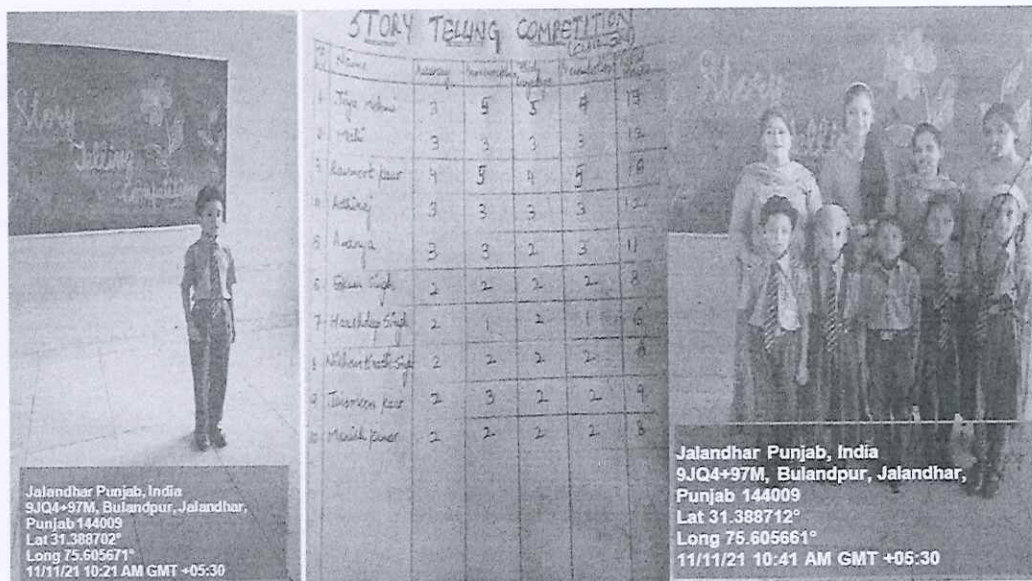 Story
Telling
Competition
Jalandhar Punjab, India
9JQ4+97M, Bulandpur, Jalandhar,
Punjab 144009
Lat 31.388702°
Long 75.605671°
11/11/21 10:21 AM GMT +05:30
STORY TELLING COMPETITION
Name
1 3 5 5
2 Mahi 3 3 3 3 12
3 Kaur 4 5 4 5 18
4 3 3 3 3 12
5 Ananya 3 3 2 3 11
6 Singh 2 2 2 2 8
7 Harshdeep Singh 2 1 2 1 6
8 Singh 2 2 2 2 8
9 Jasmeen Kaur 2 3 2 2 9
10 Manish Kumar 2 2 2 2 8
Story
Jalandhar Punjab, India
9JQ4+97M, Bulandpur, Jalandhar,
Punjab 144009
Lat 31.388712°
Long 75.605661°
11/11/21 10:41 AM GMT +05:30